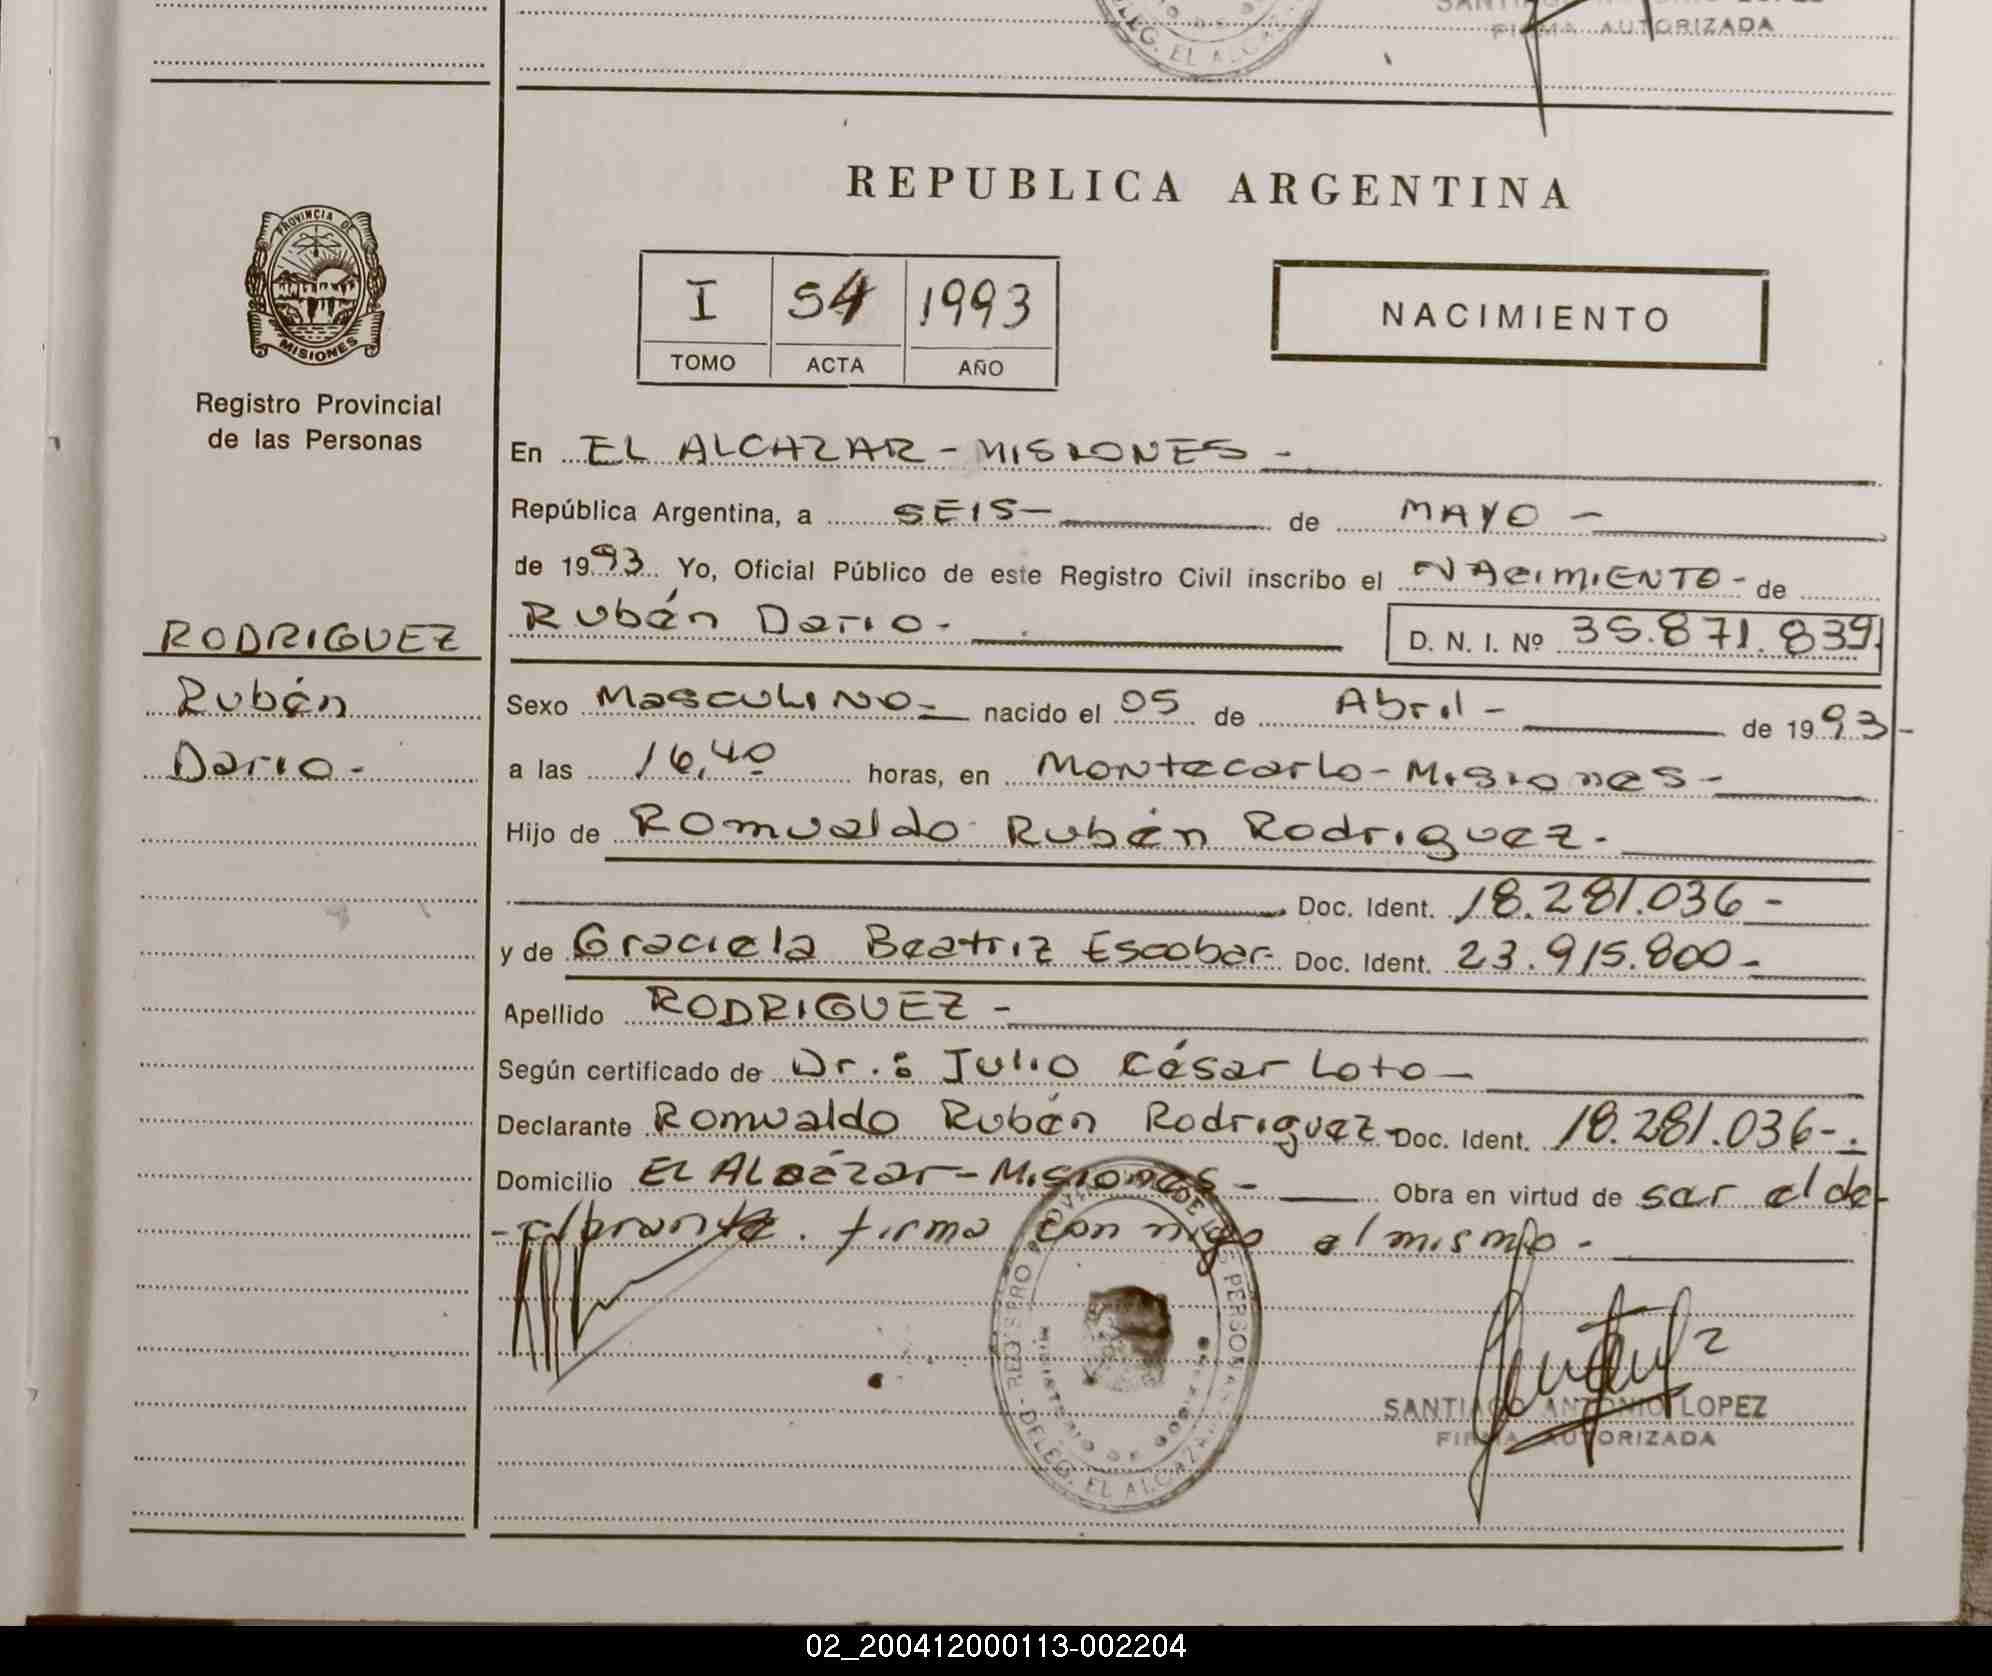 FIRMA AUTORIZADA
REPUBLICA ARGENTINA
PROVINCIA DE
MISIONES
I 54 1993
TOMO ACTA AÑO
NACIMIENTO
Registro Provincial
de las Personas
En EL ALCAZAR - MISIONES -
República Argentina, a SEIS- de MAYO -
de 1993 Yo, Oficial Público de este Registro Civil inscribo el NACIMIENTO - de
Rubén Dario - D. N. I. Nº 35.871.839
RODRIGUEZ
Rubén
Dario -
Sexo Masculino - nacido el 05 de Abril - de 1993 -
a las 16,40 horas, en Montecarlo - Misiones -
Hijo de Romualdo Rubén Rodriguez -
Doc. Ident. 18.281.036 -
y de Graciela Beatriz Escobar - Doc. Ident. 23.915.800 -
Apellido RODRIGUEZ -
Según certificado de Dr.: Julio César Loto -
Declarante Romualdo Rubén Rodriguez - Doc. Ident. 18.281.036 -.
Domicilio El Alcázar - Misiones - Obra en virtud de ser el de-
-clarante. firma con migo el mismo -
REGISTRO PROVINCIAL DE LAS PERSONAS
MINISTERIO DE GOBIERNO
DELEG. EL ALCAZAR
SANTIAGO ANTONIO LOPEZ
FIRMA AUTORIZADA
02_200412000113-002204